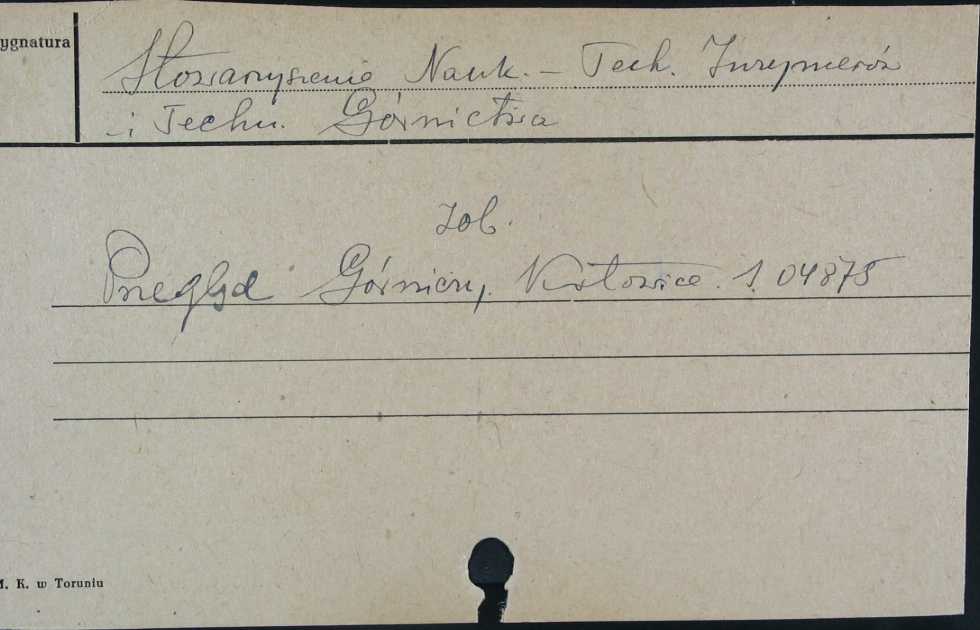 ygnatura
Stowarzyszenie Nauk. - Tech. Inżynierów
i Techn. Górnictwa
zob.
Przegląd Górniczy, Katowice. 1. 04875
M. K. w Toruniu